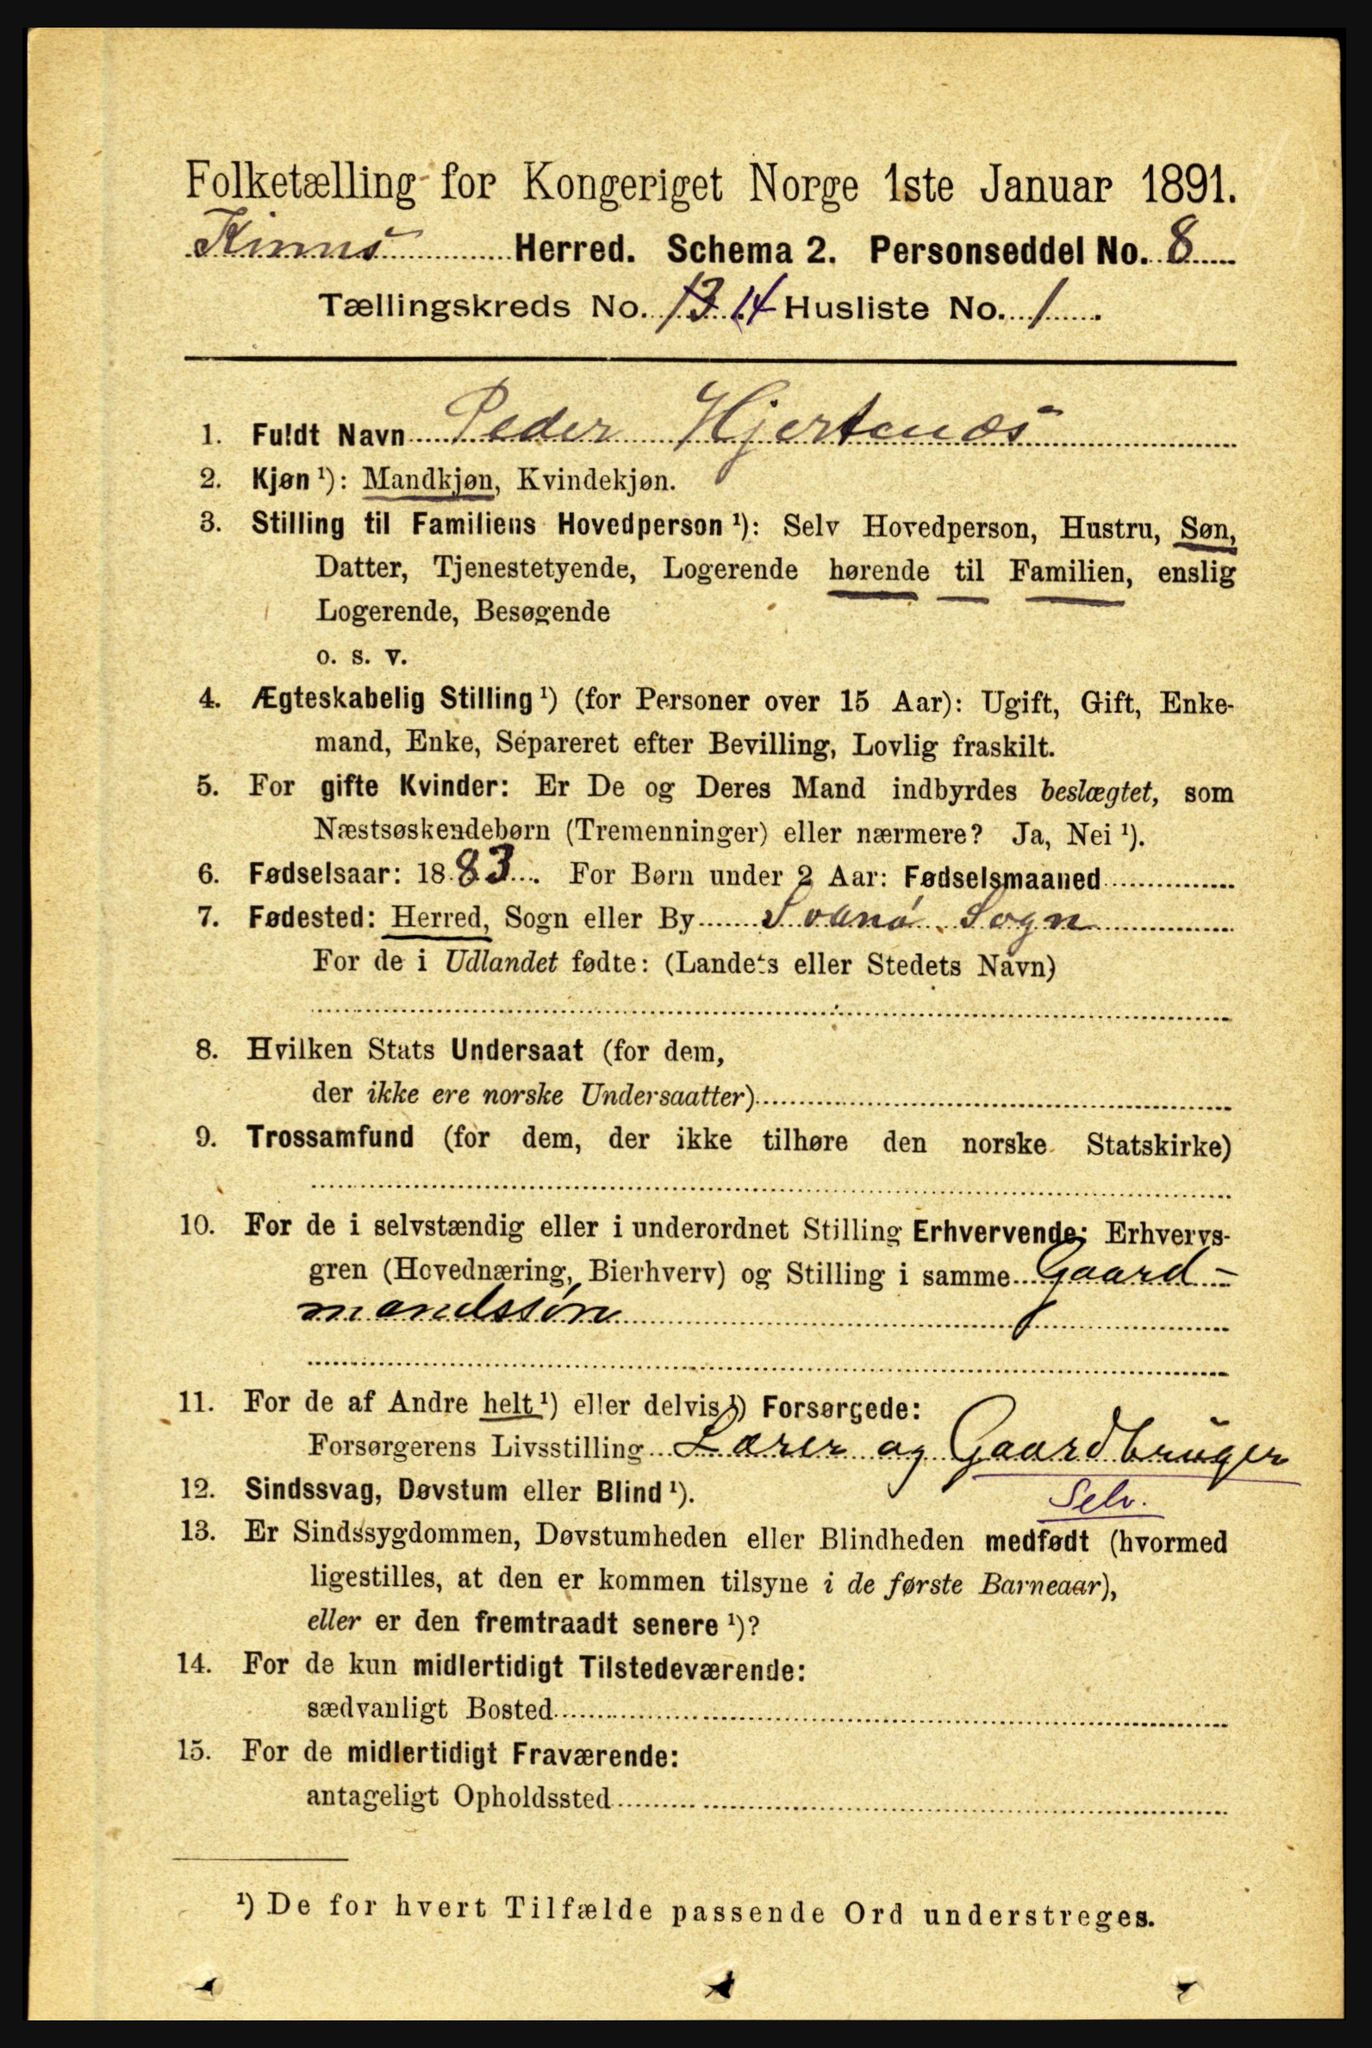 Folketælling for Kongeriget Norge 1ste Januar 1891.
Kinns Herred. Schema 2. Personseddel No. 8
Tællingskreds No. 13 14 Husliste No. 1.
1. Fuldt Navn Peder Hjertenæs
2. Kjøn ¹): Mandkjøn, Kvindekjøn.
3. Stilling til Familiens Hovedperson ¹): Selv Hovedperson, Hustru, Søn,
Datter, Tjenestetyende, Logerende hørende til Familien, enslig
Logerende, Besøgende
o. s. v.
4. Ægteskabelig Stilling ¹) (for Personer over 15 Aar): Ugift, Gift, Enke-
mand, Enke, Separeret efter Bevilling, Lovlig fraskilt.
5. For gifte Kvinder: Er De og Deres Mand indbyrdes beslægtet, som
Næstsøskendebørn (Tremenninger) eller nærmere? Ja, Nei ¹).
6. Fødselsaar: 1883. For Børn under 2 Aar: Fødselsmaaned
7. Fødested: Herred, Sogn eller By Svanø Sogn
For de i Udlandet fødte: (Landets eller Stedets Navn)
8. Hvilken Stats Undersaat (for dem,
der ikke ere norske Undersaatter)
9. Trossamfund (for dem, der ikke tilhøre den norske Statskirke)
10. For de i selvstændig eller i underordnet Stilling Erhvervende: Erhvervs-
gren (Hovednæring, Bierhverv) og Stilling i samme Gaard-
mandssøn
11. For de af Andre helt ¹) eller delvis ¹) Forsørgede:
Forsørgerens Livsstilling Lærer og Gaardbruger
12. Sindssvag, Døvstum eller Blind ¹). Selv.
13. Er Sindssygdommen, Døvstumheden eller Blindheden medfødt (hvormed
ligestilles, at den er kommen tilsyne i de første Barneaar),
eller er den fremtraadt senere ¹)?
14. For de kun midlertidigt Tilstedeværende:
sædvanligt Bosted
15. For de midlertidigt Fraværende:
antageligt Opholdssted
¹) De for hvert Tilfælde passende Ord understreges.